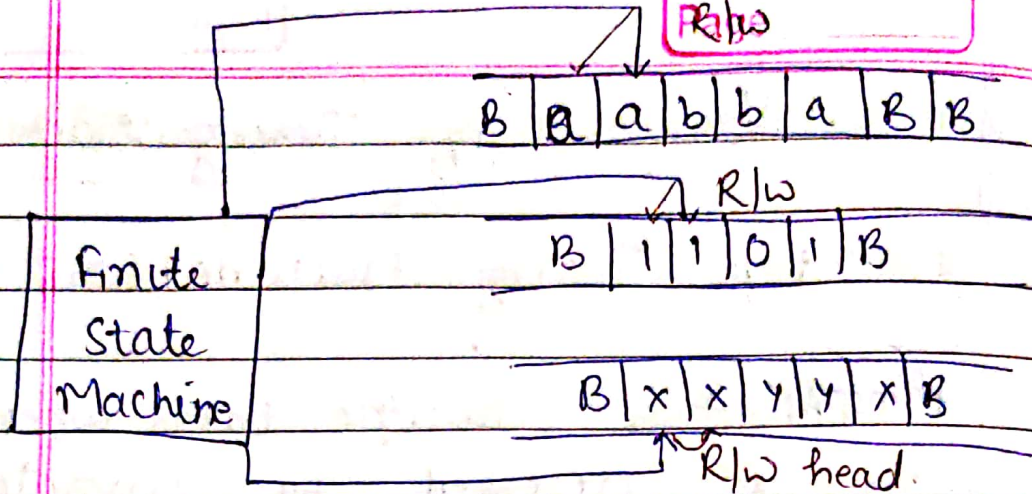 R/W
B a a b b a B B
R/W
B 1 1 0 1 B
Finite
State
Machine
B x x y y x B
R/W head.